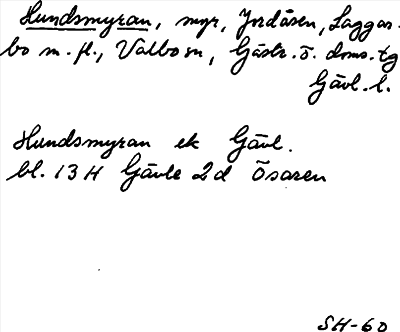 Hundsmyran, myr, Jordåsen, Laggar-
bo m. fl., Valbo sn, Gästr. ö. doms. tg
Gävl. l.
Hundsmyran ek Gävl.
bl. 13 H Gävle 2d Ösaren
SH-60